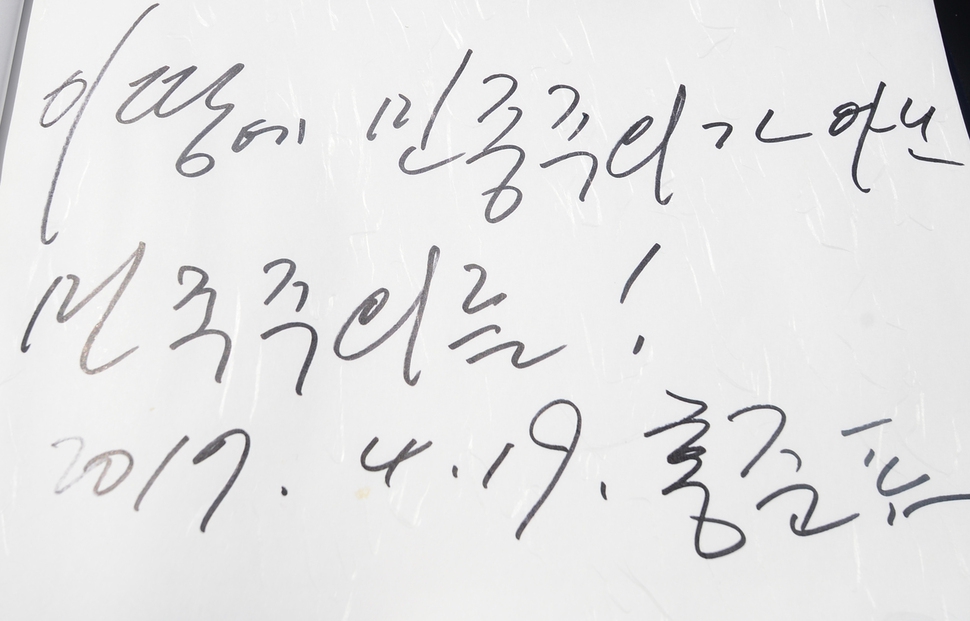 이 땅에 민중주의가 아닌
민주주의를!
2017. 4. 19. 홍준표